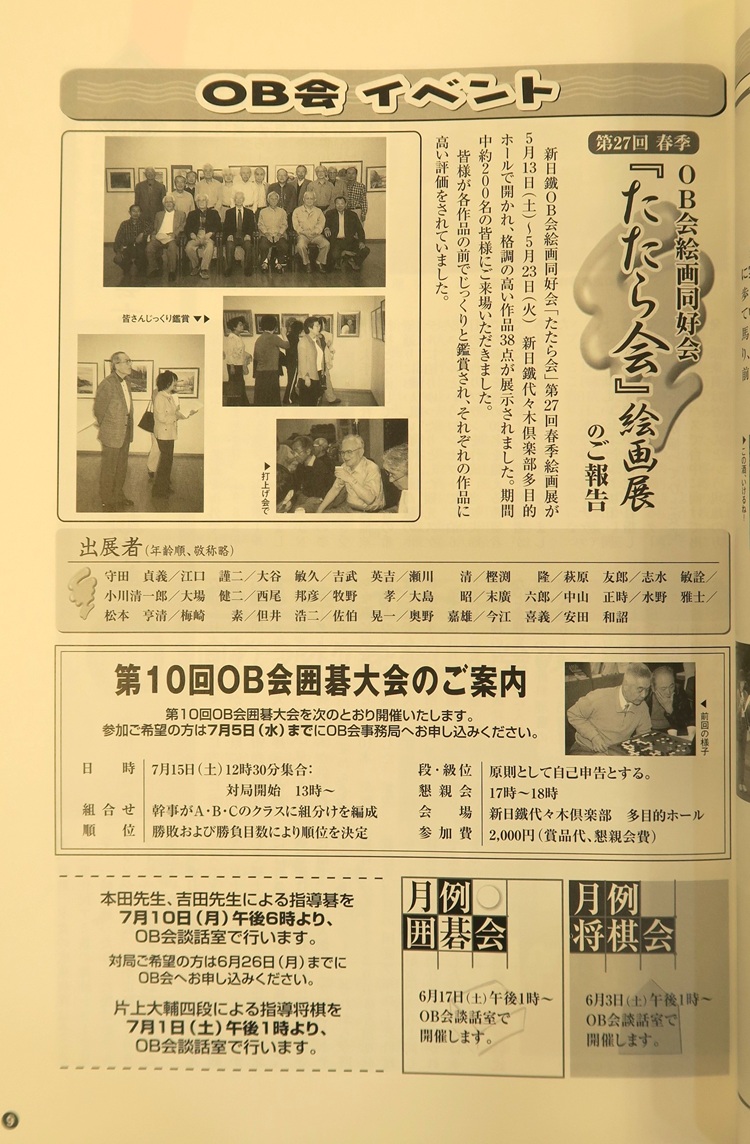 OB会 イベント
第27回 春季
OB会絵画同好会
『たたら会』絵画展
のご報告
新日鐵OB会絵画同好会「たたら会」第27回春季絵画展が
5月13日(土)～5月23日(火) 新日鐵代々木倶楽部多目的
ホールで開かれ、格調の高い作品38点が展示されました。期間
中約200名の皆様にご来場いただきました。
皆様が各作品の前でじっくりと鑑賞され、それぞれの作品に
高い評価をされていました。
皆さんじっくり鑑賞▼▶
▶打上げ会で
出展者(年齢順、敬称略)
守田 貞義／江口 謹二／大谷 敏久／吉武 英吉／瀬川 清／樫渕 隆／萩原 友郎／志水 敏詮／
小川清一郎／大場 健二／西尾 邦彦／牧野 孝／大島 昭／末廣 六郎／中山 正時／水野 雅士／
松本 亨清／梅崎 素／但井 浩二／佐伯 晃一／奥野 嘉雄／今江 喜義／安田 和詔
第10回OB会囲碁大会のご案内
第10回OB会囲碁大会を次のとおり開催いたします。
参加ご希望の方は7月5日(水)までにOB会事務局へお申し込みください。
◀前回の様子
日時 7月15日(土)12時30分集合：
対局開始 13時～
組合せ 幹事がA・B・Cのクラスに組分けを編成
順位 勝敗および勝負目数により順位を決定
段・級位 原則として自己申告とする。
懇親会 17時～18時
会場 新日鐵代々木倶楽部 多目的ホール
参加費 2,000円(賞品代、懇親会費)
本田先生、吉田先生による指導碁を
7月10日(月)午後6時より、
OB会談話室で行います。
対局ご希望の方は6月26日(月)までに
OB会へお申し込みください。
片上大輔四段による指導将棋を
7月1日(土)午後1時より、
OB会談話室で行います。
月例
囲碁会
6月17日(土)午後1時～
OB会談話室で
開催します。
月例
将棋会
6月3日(土)午後1時～
OB会談話室で
開催します。
9